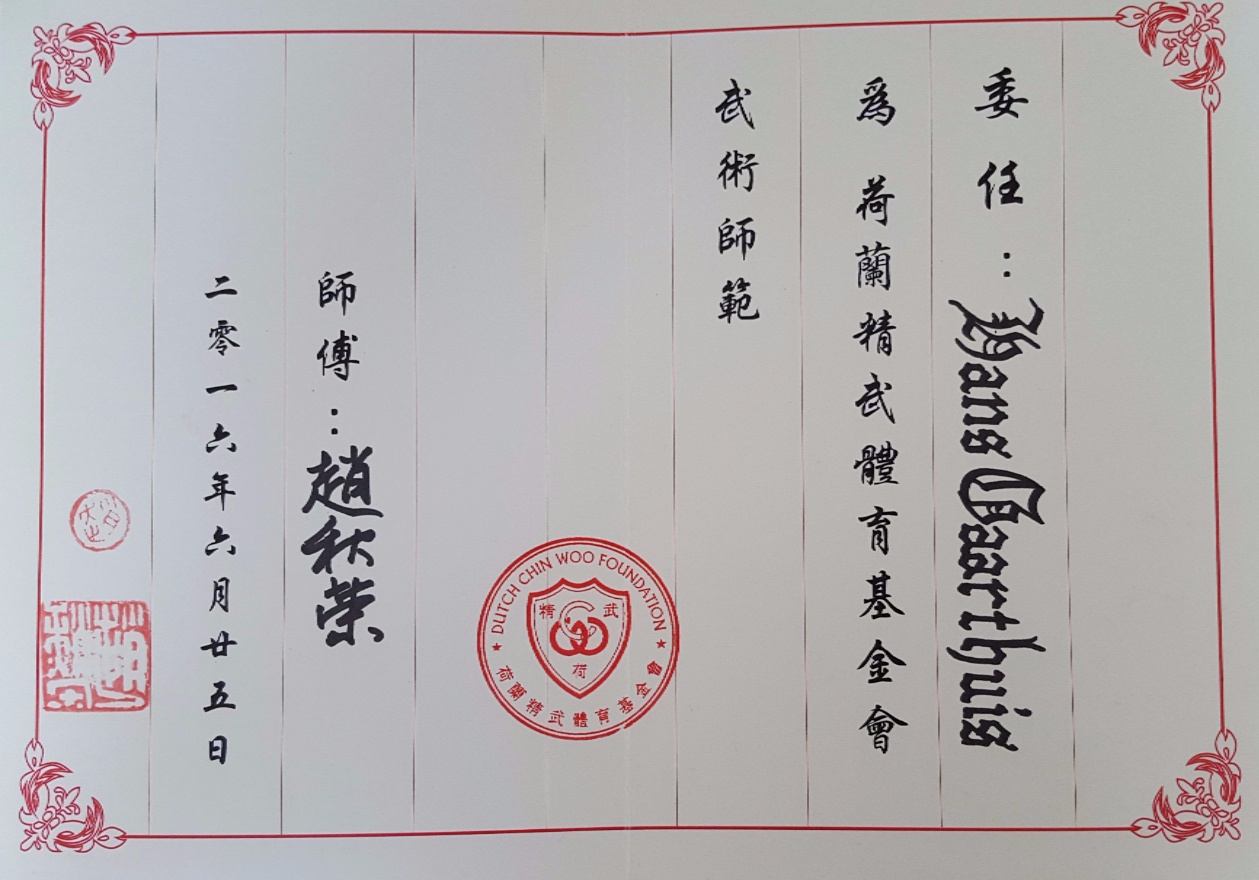 委任：Hans Baarthuis
為 荷蘭精武體育基金會
武術師範
DUTCH CHIN WOO FOUNDATION
精武
荷
荷蘭精武體育基金會
師傅：趙秋榮
二零一六年六月廿五日